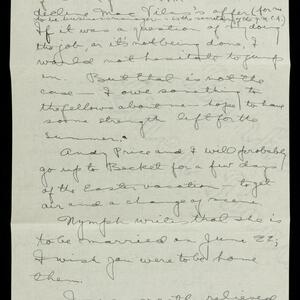 decling Mac Vilar's offer (for me
to be business manager
If it was a question of my doing
the job, or its not being done, I
would not hesitate to jump
in. But that is not the
case — I owe something to
the fellows about me + hope to have
some strength left for the
Summer.
Andy Price and I will probably
go up to Becket for a few days
of the Easter vacation — to get
air and a change of scene.
Nymph writes that she is
to be married on June 22;
I wish you were to be home
then.
relieved